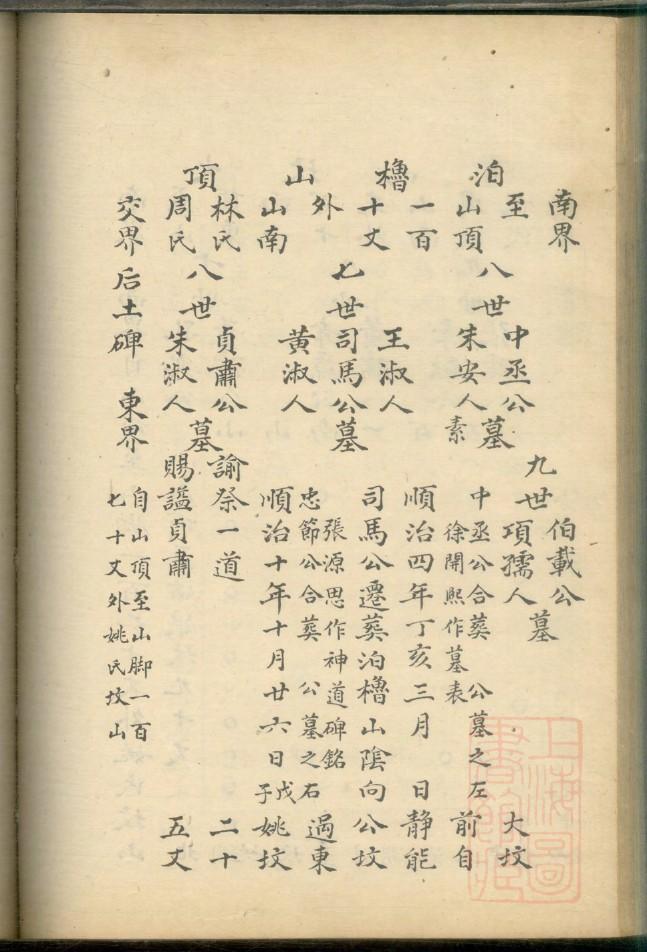 南界
伯載公
九世
項孺人
墓
大坟
至
泊
山頂
八世
中丞公
朱安人素
墓
中丞公合葬 公墓之左
徐開熙作墓表
前自
一百
順治四年丁亥三月 日静能
櫓
十丈
王淑人
七世司馬公墓
黃淑人
司馬公遷葬泊櫓山陰向公坟
外
張源思作神道碑銘
忠節公合葬 公墓之右
過東
山
山南
順治十年十月廿六日戊子姚坟
林氏
頂
周氏
八世
貞肅公
朱淑人
墓
諭祭一道
二十
賜謚貞肅
五丈
交界后土碑 東界
自山頂至山脚一百
七十丈外姚氏坟山
上海圖書館藏